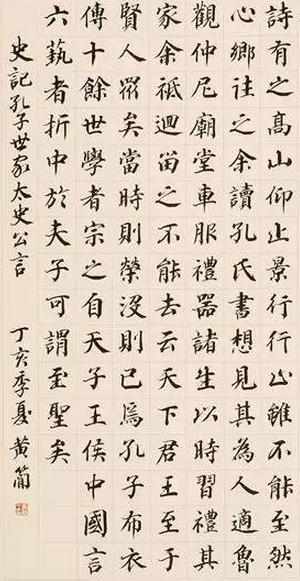 詩有之高山仰止景行行止雖不能至然
心鄉往之余讀孔氏書想見其為人適魯
觀仲尼廟堂車服禮器諸生以時習禮其
家余祗迴留之不能去云天下君王至于
賢人眾矣當時則榮沒則已焉孔子布衣
傳十餘世學者宗之自天子王侯中國言
六蓺者折中於夫子可謂至聖矣
史記孔子世家太史公言 丁亥季夏黃簡